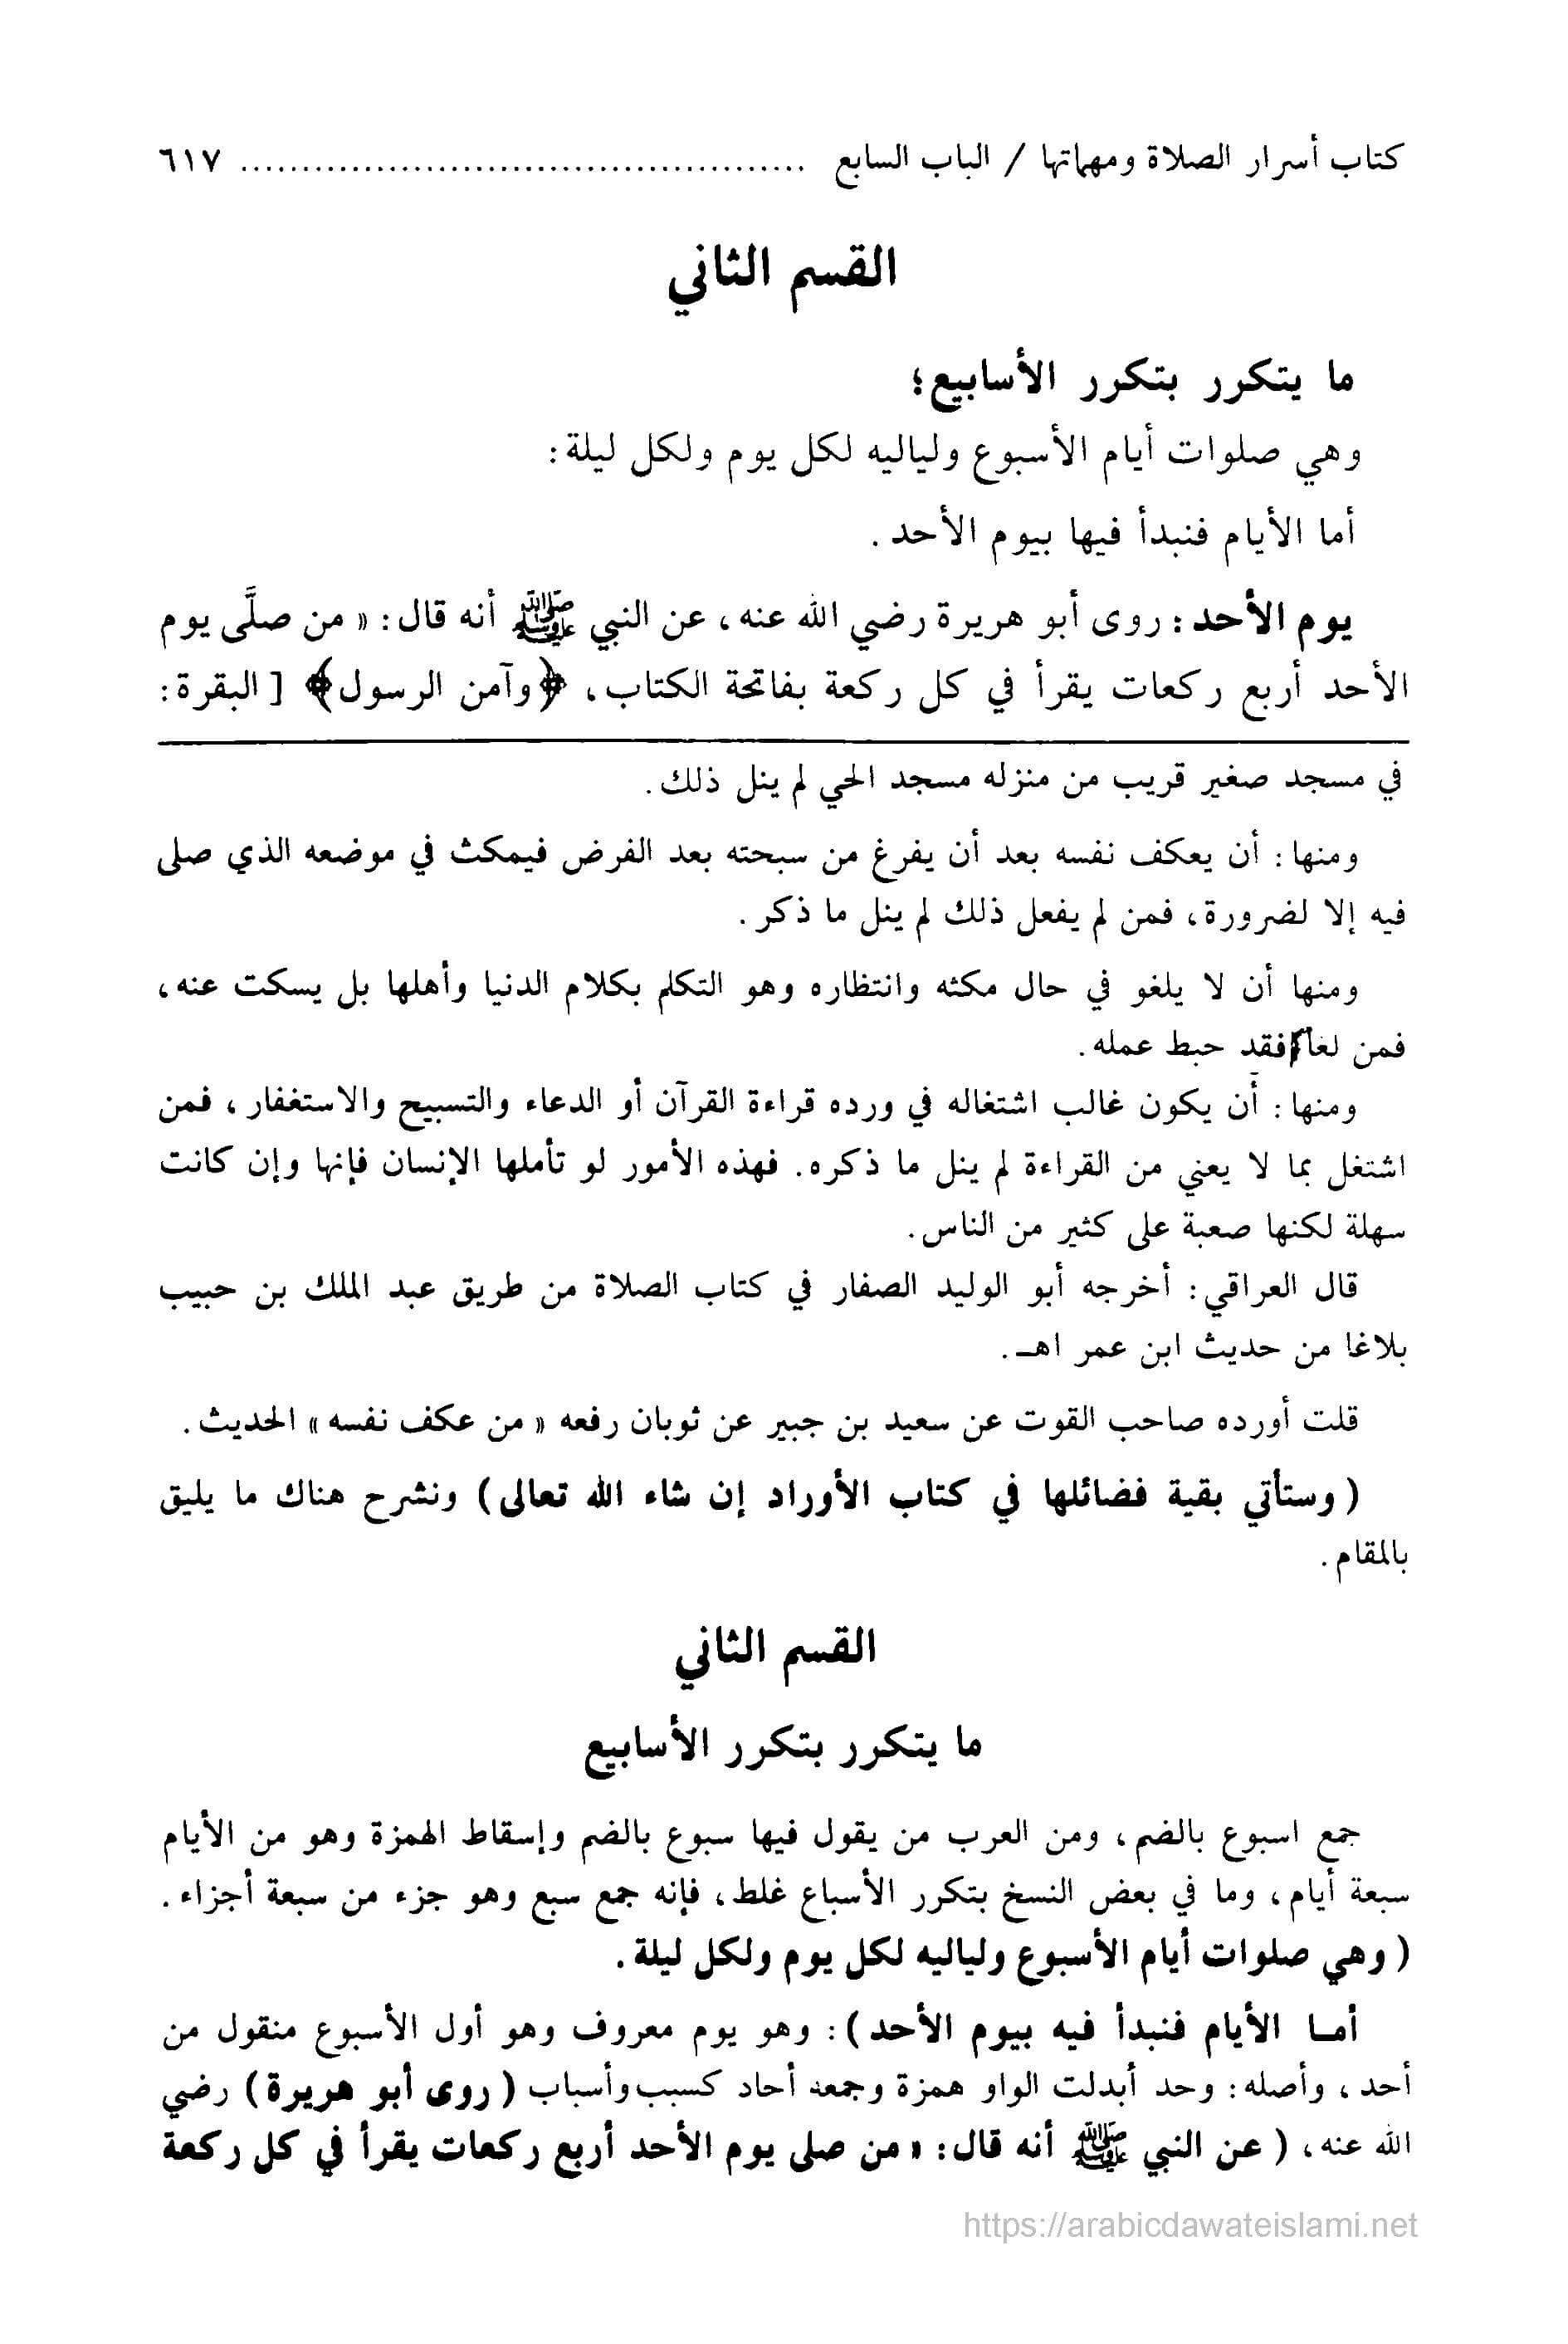 كتاب أسرار الصلاة ومهماتها / الباب السابع .............................................. ٦١٧
القسم الثاني
ما يتكرر بتكرر الأسابيع؛
وهي صلوات أيام الأسبوع ولياليه لكل يوم ولكل ليلة:
أما الأيام فنبدأ فيها بيوم الأحد.
يوم الأحد: روى أبو هريرة رضي الله عنه، عن النبي ﷺ أنه قال: « من صلَّى يوم
الأحد أربع ركعات يقرأ في كل ركعة بفاتحة الكتاب، ﴿وآمن الرسول﴾ [ البقرة:
في مسجد صغير قريب من منزله مسجد الحي لم ينل ذلك.
ومنها: أن يعكف نفسه بعد أن يفرغ من سبحته بعد الفرض فيمكث في موضعه الذي صلى
فيه إلا لضرورة، فمن لم يفعل ذلك لم ينل ما ذكر.
ومنها أن لا يلغو في حال مكثه وانتظاره وهو التكلم بكلام الدنيا وأهلها بل يسكت عنه،
فمن لغا فقد حبط عمله.
ومنها: أن يكون غالب اشتغاله في ورده قراءة القرآن أو الدعاء والتسبيح والاستغفار، فمن
اشتغل بما لا يعني من القراءة لم ينل ما ذكره. فهذه الأمور لو تأملها الإنسان فإنها وإن كانت
سهلة لكنها صعبة على كثير من الناس.
قال العراقي: أخرجه أبو الوليد الصفار في كتاب الصلاة من طريق عبد الملك بن حبيب
بلاغا من حديث ابن عمر اهـ.
قلت أورده صاحب القوت عن سعيد بن جبير عن ثوبان رفعه « من عكف نفسه » الحديث.
( وستأتي بقية فضائلها في كتاب الأوراد إن شاء الله تعالى) ونشرح هناك ما يليق
بالمقام.
القسم الثاني
ما يتكرر بتكرر الأسابيع
جمع اسبوع بالضم، ومن العرب من يقول فيها سبوع بالضم وإسقاط الهمزة وهو من الأيام
سبعة أيام، وما في بعض النسخ بتكرر الأسباع غلط، فإنه جمع سبع وهو جزء من سبعة أجزاء.
( وهي صلوات أيام الأسبوع ولياليه لكل يوم ولكل ليلة.
أمـا الأيام فنبدأ فيه بيوم الأحد): وهو يوم معروف وهو أول الأسبوع منقول من
أحد، وأصله: وحد أبدلت الواو همزة وجمعه أحاد كسبب وأسباب ( روى أبو هريرة) رضي
الله عنه، ( عن النبي ﷺ أنه قال: « من صلى يوم الأحد أربع ركعات يقرأ في كل ركعة
https://arabicdawateislami.net